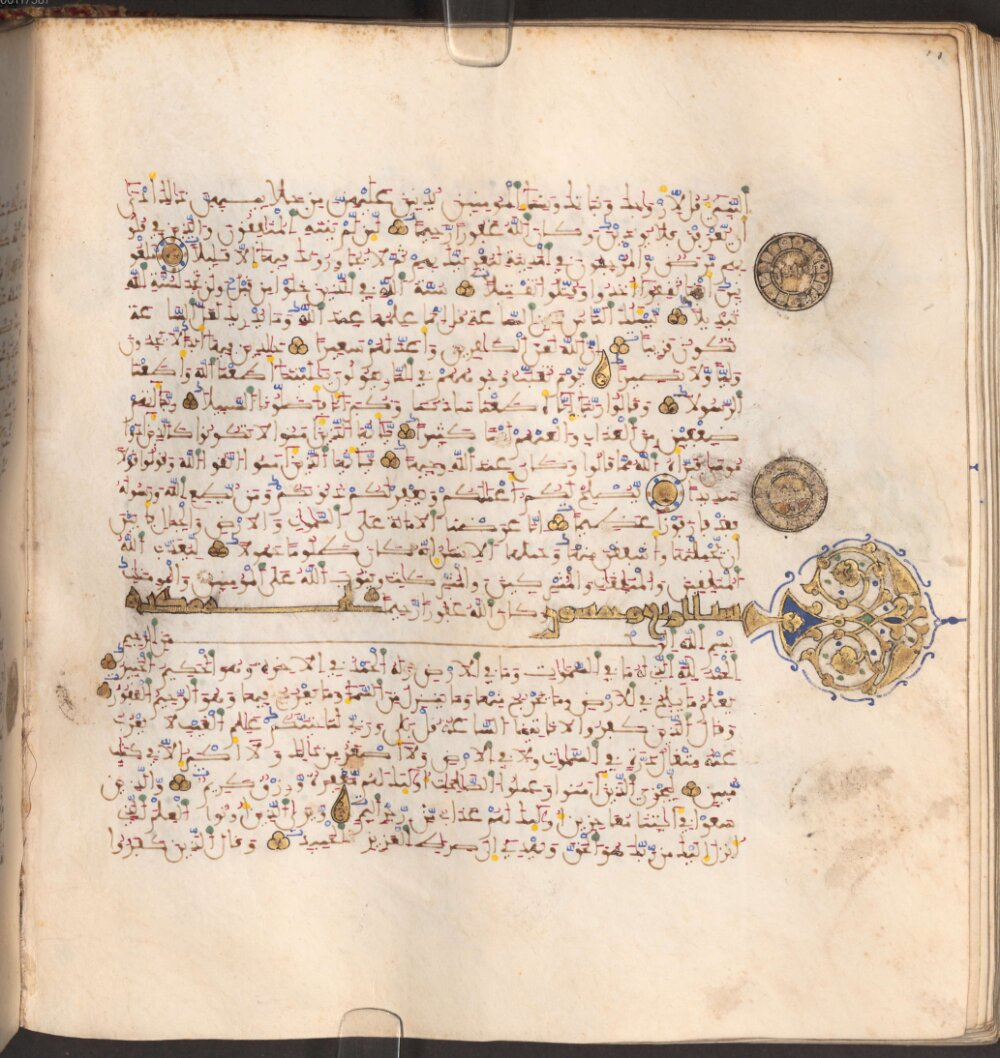 النبيء قل لأزواجك وبناتك ونساء المومنين يدنين عليهن من جلابيبهن ذلك أدنى
أن يعرفن فلا يوذين وكان الله غفورا رحيما لئن لم ينته المنافقون والذين في قلو
بهم مرض والمرجفون في المدينة لنغرينك بهم ثم لا يجاورونك فيها إلا قليلا ملعو
نين أينما ثقفوا أخذوا وقتلوا تقتيلا سنة الله في الذين خلوا من قبل ولن تجد لسنة الله
تبديلا يسئلك الناس عن الساعة قل إنما علمها عند الله وما يدريك لعل الساعة
تكون قريبا إن الله لعن الكافرين وأعد لهم سعيرا خالدين فيها أبدا لا يجدون
وليا ولا نصيرا يوم تقلب وجوههم في النار يقولون يليتنا أطعنا الله وأطعنا
الرسولا وقالوا ربنا إنا أطعنا سادتنا وكبراءنا فأضلونا السبيلا ربنا ءاتهم
ضعفين من العذاب والعنهم لعنا كثيرا يأيها الذين ءامنوا لا تكونوا كالذين ءاذوا
موسى فبرأه الله مما قالوا وكان عند الله وجيها يأيها الذين ءامنوا اتقوا الله وقولوا قولا
سديدا يصلح لكم أعمالكم ويغفر لكم ذنوبكم ومن يطع الله ورسوله
فقد فاز فوزا عظيما إنا عرضنا الأمانة على السموات والأرض والجبال فأبين
أن يحملنها وأشفقن منها وحملها الإنسان إنه كان ظلوما جهولا ليعذب الله
المنفقين والمنفقت والمشركين والمشركت ويتوب الله على المومنين والمومنت
وكان الله غفورا رحيما
بسم الله الرحمن الرحيم
الحمد لله الذي له ما في السموات وما في الأرض وله الحمد في الآخرة وهو الحكيم الخبير
يعلم ما يلج في الأرض وما يخرج منها وما ينزل من السماء وما يعرج فيها وهو الرحيم الغفور
وقال الذين كفروا لا تأتينا الساعة قل بلى وربي لتأتينكم علم الغيب لا يعزب
عنه مثقال ذرة في السموات ولا في الأرض ولا أصغر من ذلك ولا أكبر إلا في كتب
مبين ليجزي الذين ءامنوا وعملوا الصلحت أولئك لهم مغفرة ورزق كريم والذين
سعو في ءايتنا معجزين أولئك لهم عذاب من رجز أليم ويرى الذين أوتوا العلم الذي
أنزل إليك من ربك هو الحق ويهدي إلى صرط العزيز الحميد وقال الذين كفروا